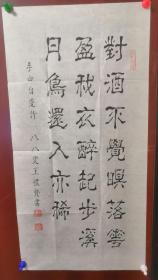 對酒不覺暝落
盈我衣醉起步溪
月鳥還人亦稀
李白自遣詩 八八叟王書